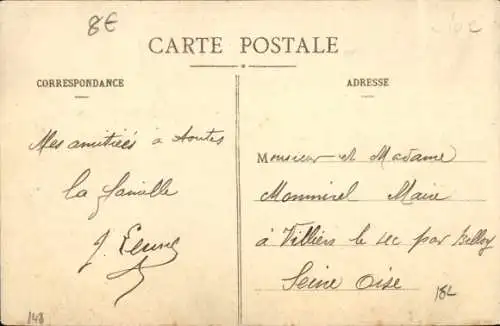 8€
CARTE POSTALE
CORRESPONDANCE
ADRESSE
Mes amitiées à toutes
la famille
J.
Monsieur et Madame
Monmirel Maire
à Villiers le sec par Belloy
Seine Oise
148
182